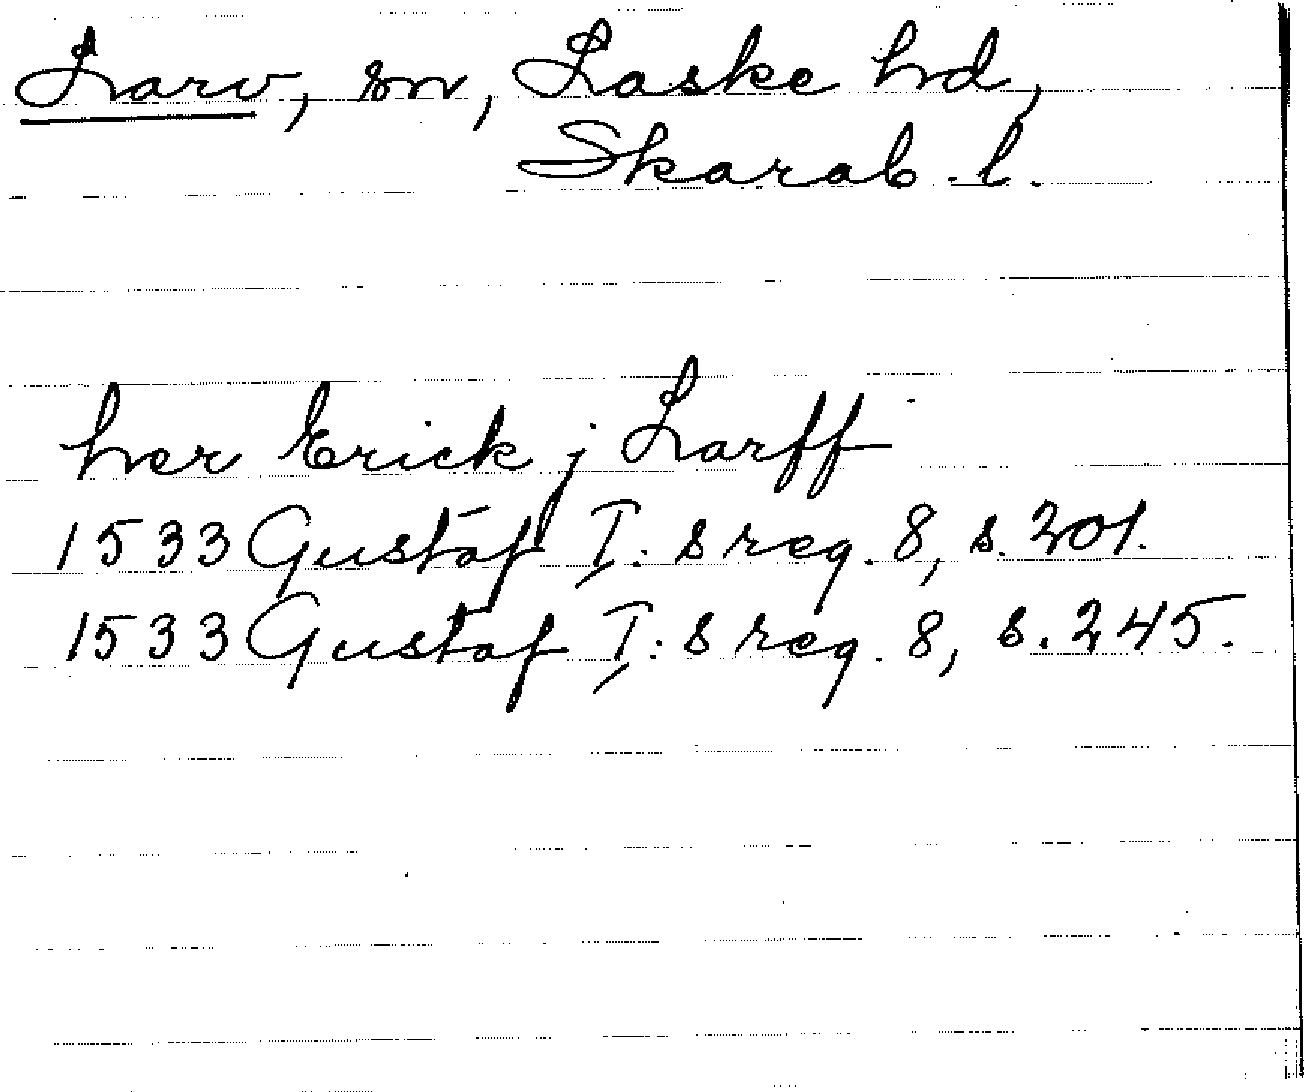 Larv, sn, Laske hd,
Skarab. l.
her Erick j Larff
1533 Gustaf I:s reg. 8, s. 201.
1533 Gustaf I:s reg. 8, s. 245.